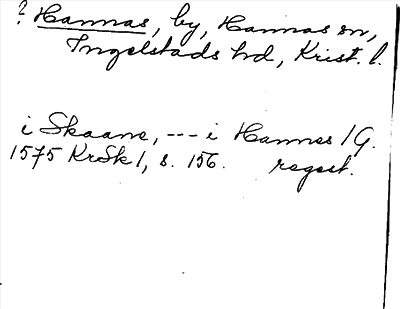 ? Hannas, by, Hannas sn,
Ingelstads hd, Krist. l.
i Skaane, --- i Hannes 1 G.
1575 KrSk 1, s. 156. regest.